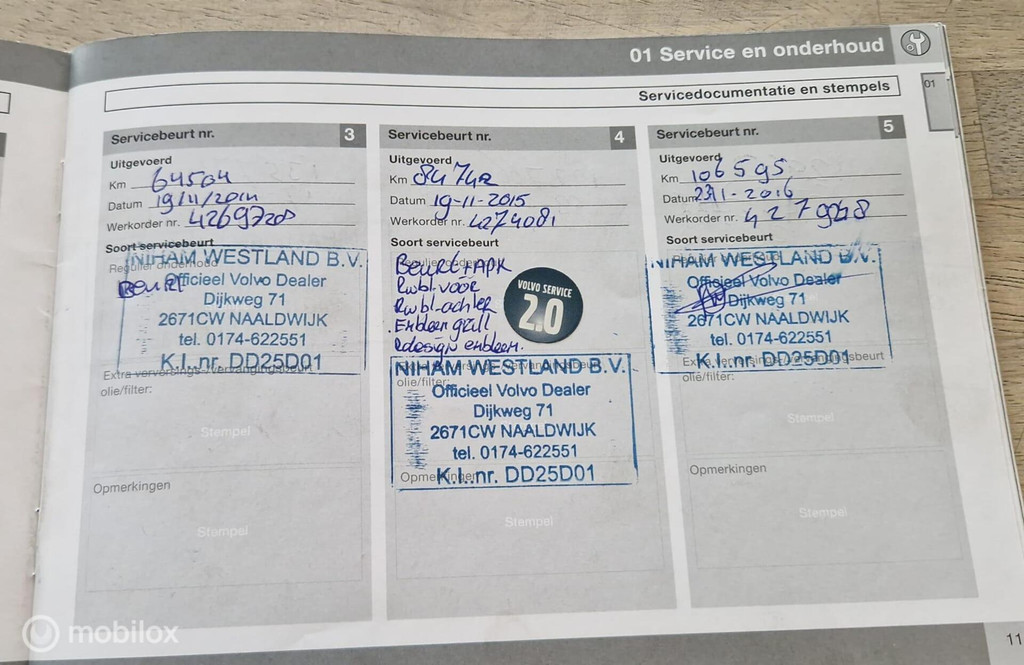 01 Service en onderhoud
01
Servicedocumentatie en stempels
Servicebeurt nr. 3
Uitgevoerd
Km 64504
Datum 19/11/2014
Werkorder nr. 4269720
Soort servicebeurt
Regulier onderhoud
Beurt
NIHAM WESTLAND B.V.
Officieel Volvo Dealer
Dijkweg 71
2671CW NAALDWIJK
tel. 0174-622551
K.I. nr. DD25D01
Extra verversings-/vervangingsbeurt
olie/filter:
Stempel
Opmerkingen
Stempel
Servicebeurt nr. 4
Uitgevoerd
Km 84742
Datum 19-11-2015
Werkorder nr. 4274081
Soort servicebeurt
Beurt+APK
Rwbl. voor
Rwbl. achter
Embleem grill
Rdesign embleem.
VOLVO SERVICE
2.0
NIHAM WESTLAND B.V.
olie/filter:
Officieel Volvo Dealer
Dijkweg 71
2671CW NAALDWIJK
tel. 0174-622551
Opmerkingen
K.I. nr. DD25D01
Stempel
Servicebeurt nr. 5
Uitgevoerd
Km 106595
Datum 23/1-2016
Werkorder nr. 4279048
Soort servicebeurt
NIHAM WESTLAND B.V.
Officieel Volvo Dealer
Dijkweg 71
2671CW NAALDWIJK
tel. 0174-622551
K.I. nr. DD25D01
Extra verversings-/vervangingsbeurt
olie/filter:
Stempel
Opmerkingen
Stempel
11
mobilox